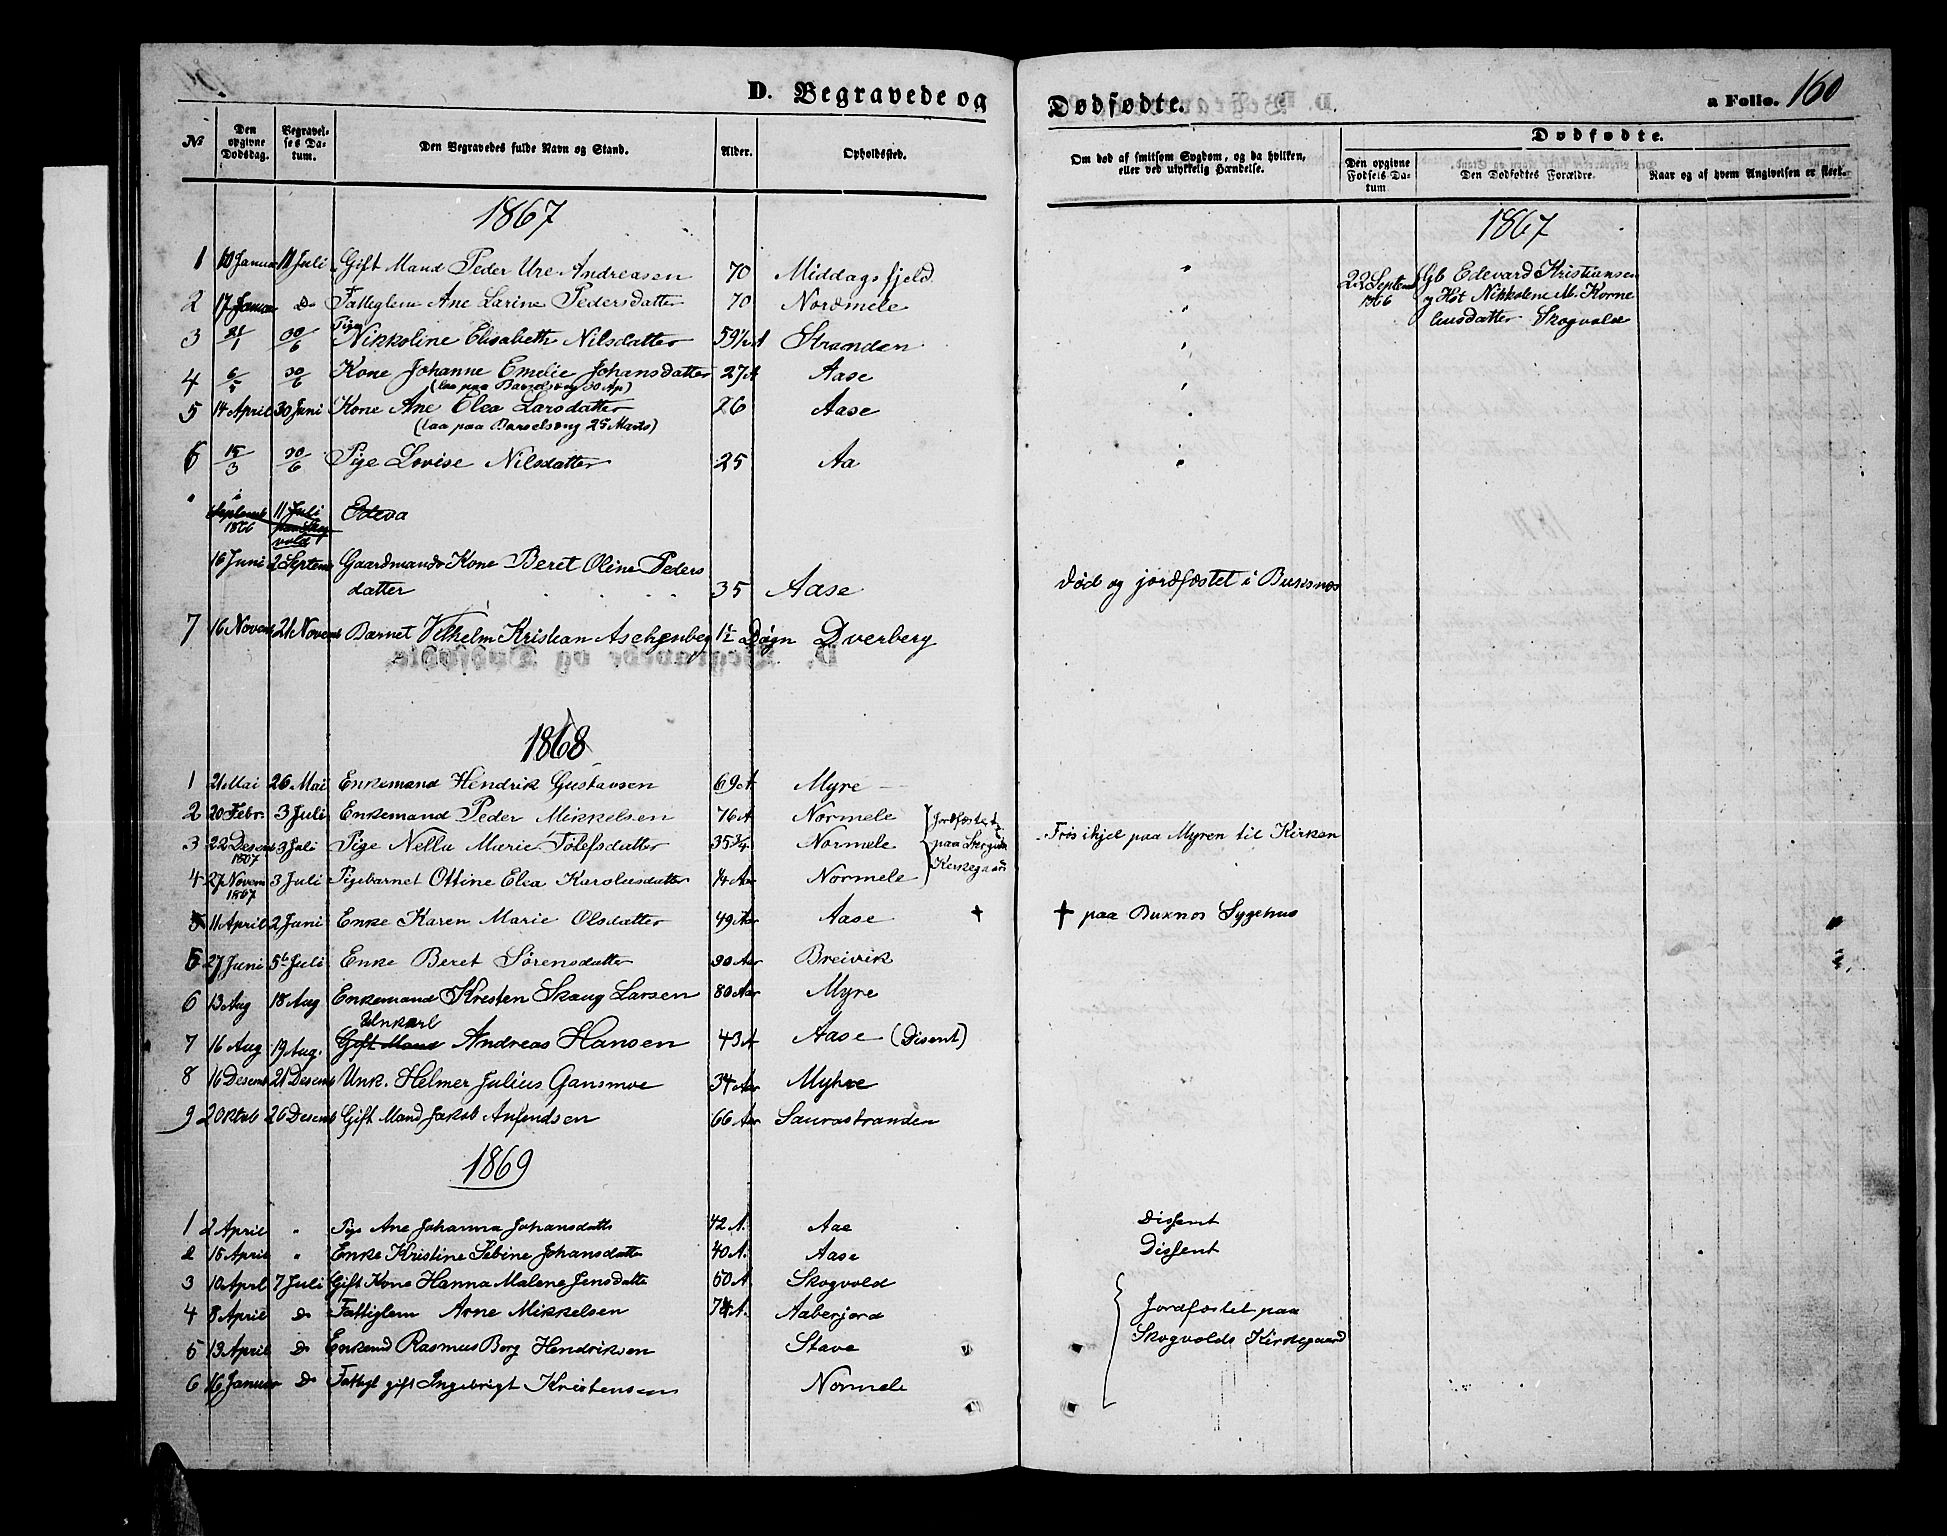 D. Begravede og Dødfødte.
a Folio. 160
№
Den opgivne Dødsdag.
Begravelses Datum.
Den Begravedes fulde Navn og Stand.
Alder.
Opholdssted.
Om død af smitsom Sygdom, og da hvilken, eller ved ulykkelig Hændelse.
Dødfødte.
Den opgivne Fødsels Datum
Den Dødfødtes Forældre.
Naar og af hvem Angivelsen er skeet.
1867
1 10 Januar 11 Juli Gift Mand Peder Ure Andreasen 70 Middagsfjeld "
2 17 Januar Do Fattiglem Ane Larine Pedersdatter 70 Nordmele "
3 21/1 30/6 Pige Nikkoline Elisabeth Nilsdatter 59½ A Stranden "
4 6/5 30/6 Kone Johanne Emilie Johansdatter 27 A Aase "
(laa paa Barselseng 30 Ap)
5 14 April 30 Juni Kone Ane Elea Larsdatter 26 Aase "
(laa paa Barselseng 25 Marts)
6 15/3 30/6 Pige Lovise Nilsdatter 25 Aa "
Septemb 1866 11 Juli Edeva
16 Juni 2 Septemb Gaardmands Kone Beret Oline Peders
datter 35 Aase Død og jordfæstet i Buxsnæs
7 16 Novemb 21 Novemb Barnet Vilhelm Kristian Aschenberg 1½ Døgn Dverberg
1867
22 Septemb 1866 Edevard Kristiansen
og Hst Nikkoline M. Korne
liusdatter Skogvold
1868
1 21 Mai 26 Mai Enkemand Hendrik Gustavsen 69 A Myre
2 20 Febr. 3 Juli Enkemand Peder Mikkelsen 76 A Normele
3 22 Desemb 1867 3 Juli Pige Nella Marie Tolefsdatter 35¾ Normele Frøs ihjel paa Myren til Kirken
4 27 Novem 1867 3 Juli Pigebarnet Ottine Elea Karolusdatter ¼ Aar Normele
Jordfæstet
paa Skogvold
Kirkegaard
5 11 April 2 Juni Enke Karen Marie Olsdatter 49 Aar Aase † † paa Buxnæs Sygehus
5 27 Juni 5te Juli Enke Beret Sörensdatter 90 Aar Breivik
6 13 Aug 18 Aug Enkemand Kresten Skaug Larsen 80 Aar Myre
Unkarl
7 16 Aug 19 Aug. Gift Mand Andreas Hansen 43 A Aase (Disent)
8 16 Desemb 21 Desemb Unk. Helmer Julius Gansmoe 34 Aar Myhre
9 2 Oktob 26 Desemb Gift Mand Jakob Anfindsen 66 Aar Saurastranden
1869
1 2 April " Pige Ane Johanna Johansdatte 42 A. Aae Dissent
2 15 April " Enke Kristine Sebine Johansdatte 40 A. Aase Dissent
3 10 April 7 Juli Gift Kone Hanna Malene Jensdatte 50 A Skogvold
4 8 April Do Fattiglem Arne Mikkelsen 74 A. Aaberjord
5 13 April Do Enkemd Rasmus Berg Hendriksen Stave
6 16 Januar Do Fattigl gift Ingebrigt Kristensen Normele
Jordfæstet paa
Skogvolds Kirkegaard